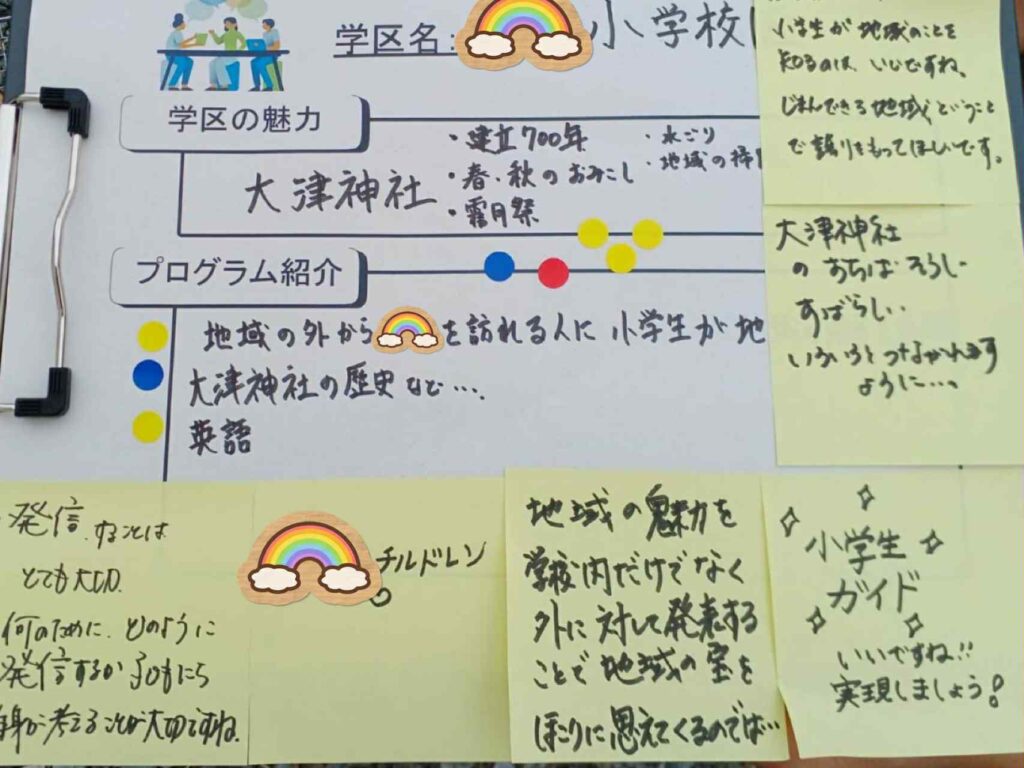 学区名:
小学校
学区の魅力
大津神社
・建立700年
・春、秋のおみこし
・霜月祭
・水ごり
・地域の掃
プログラム紹介
地域の外から
を訪れる人に 小学生が地
大津神社の歴史など…。
英語
小学生が地域のことを
知るのは、いいですね。
じまんできる地域ということ
で誇りをもってほしいです。
大津神社
のおちばそうじー
すばらしい..
いろいろとつなかれます
ように…。
発信することは
とても大切。
何のために、どのように
発信するか子どもたち
自身が考えることが大切ですね。
チルドレン
地域の魅力を
学校内だけでなく
外に対して発表する
ことで地域の宝を
ほこりに思えてくるのでは…
小学生
ガイド
いいですね!!
実現しましょう!